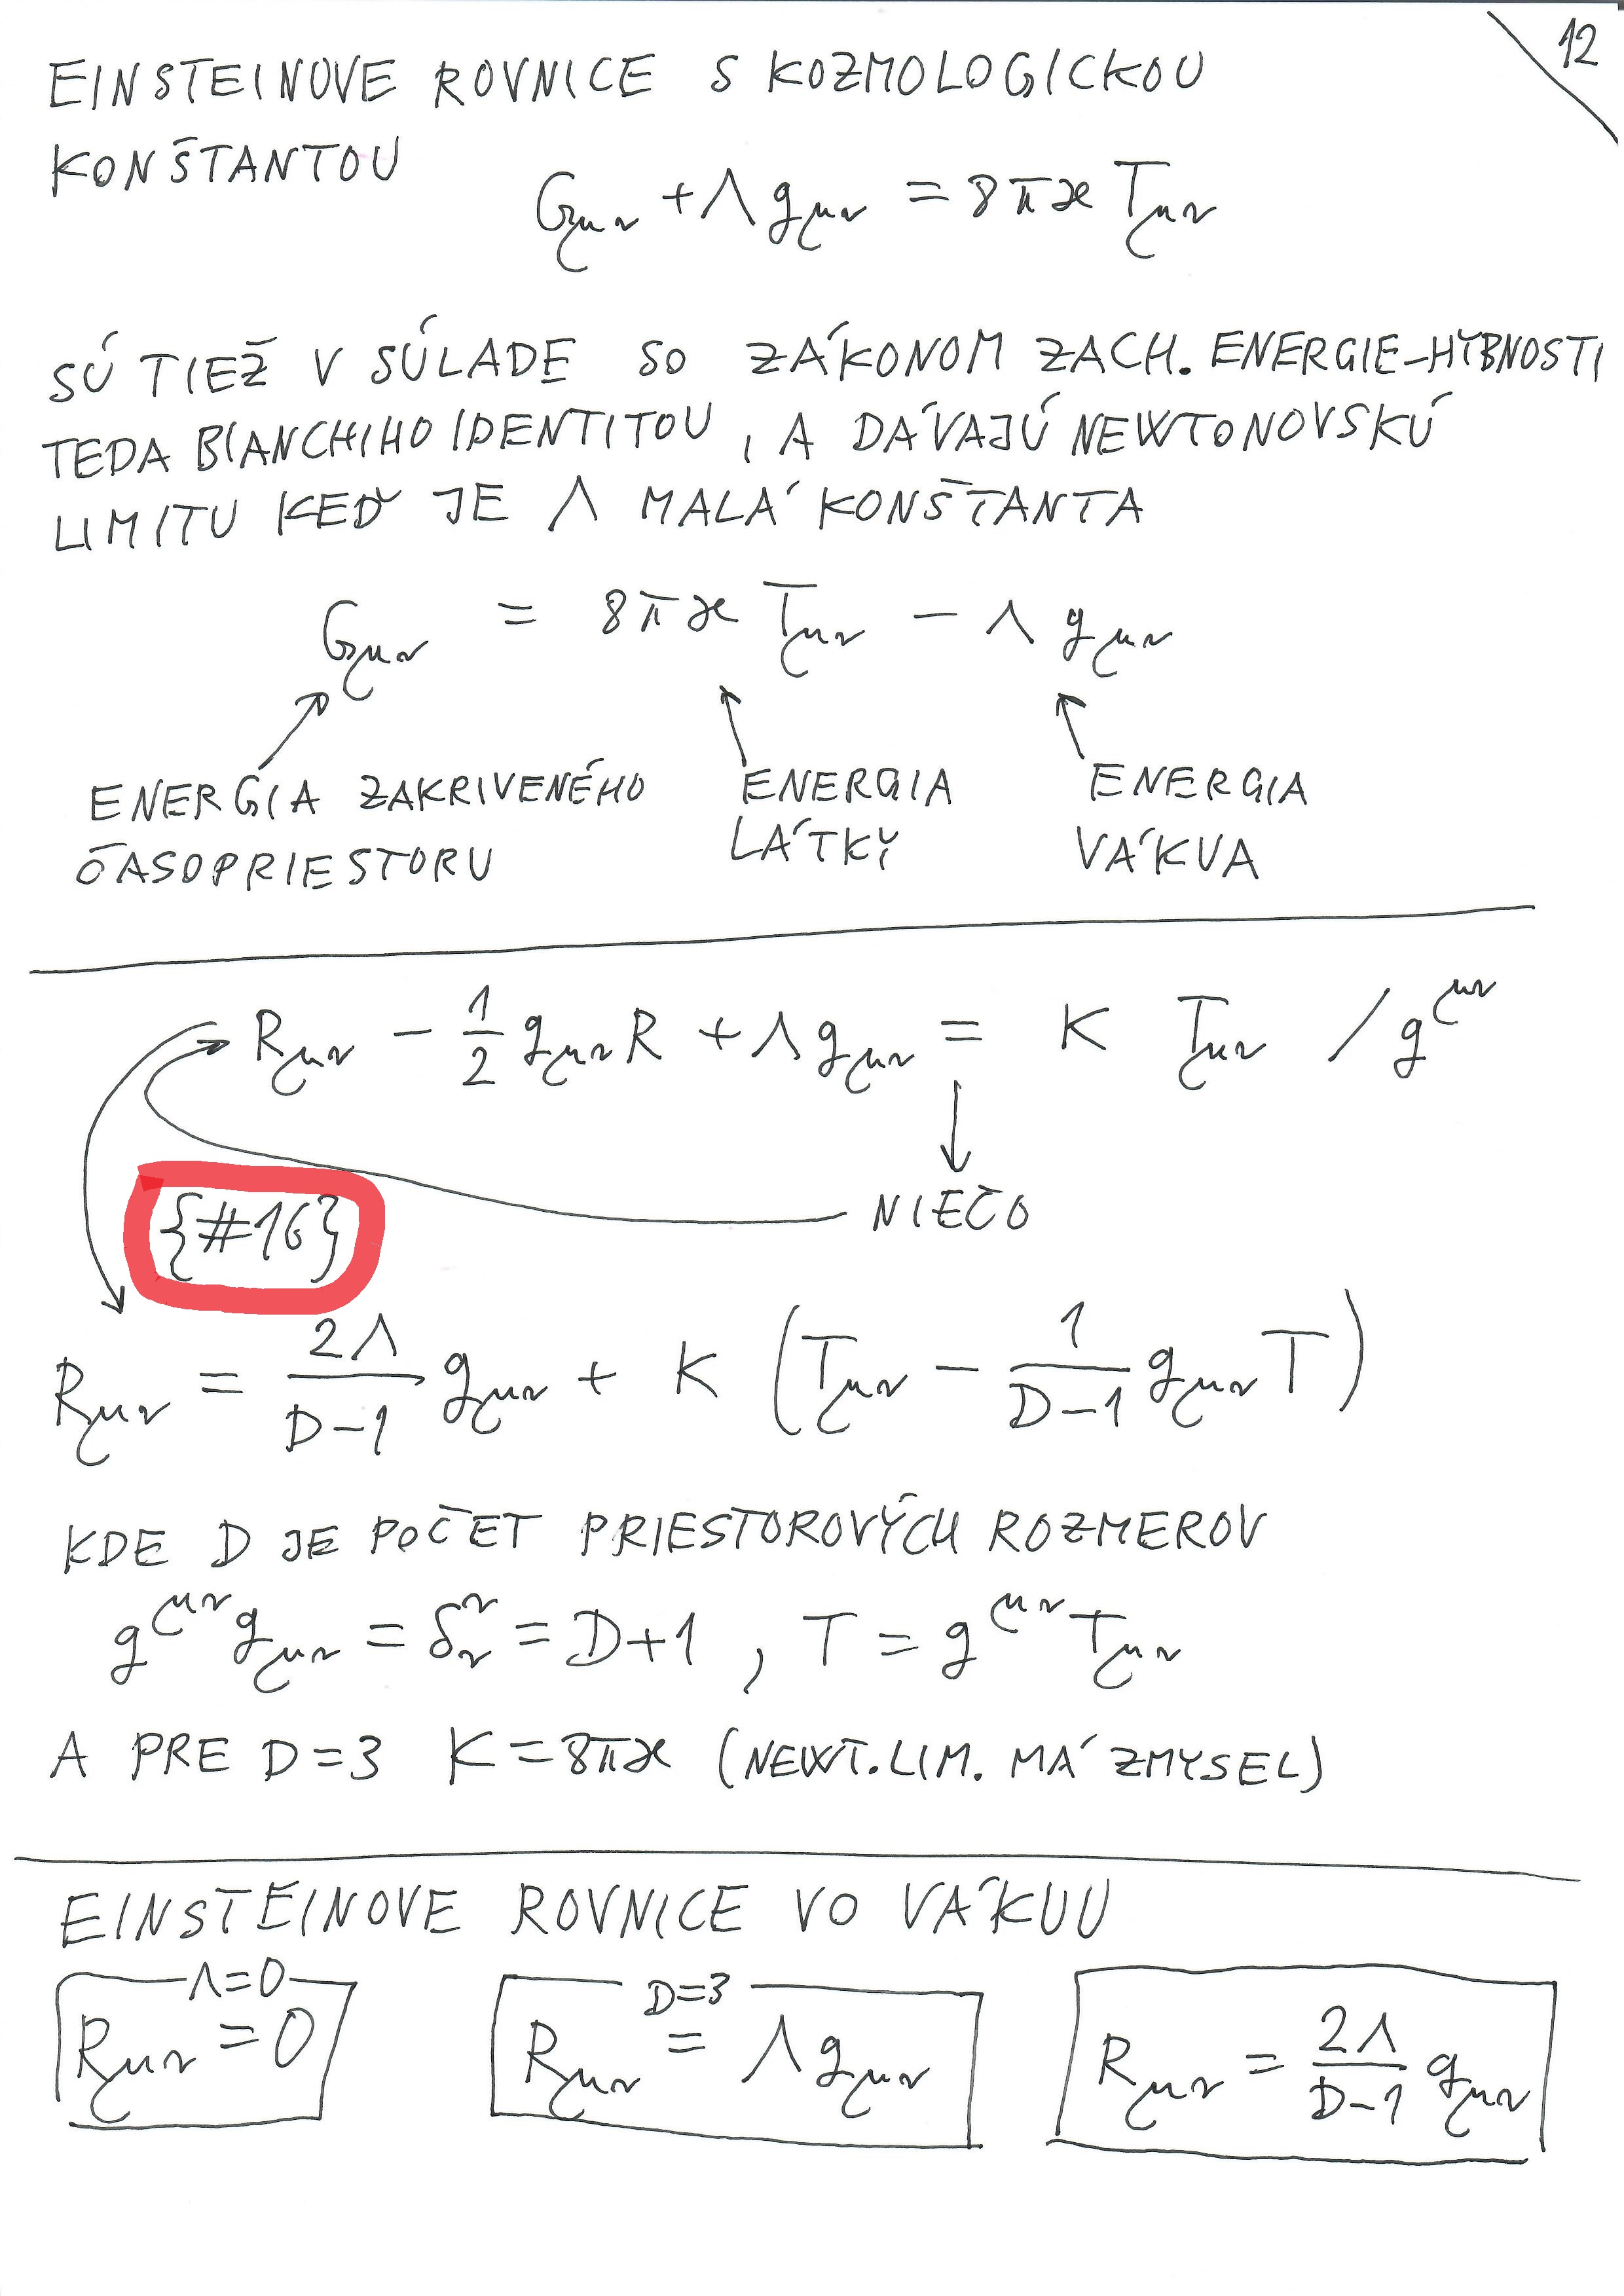 12
EINSTEINOVE ROVNICE S KOZMOLOGICKOU
KONŠTANTOU
G_μν + Λ g_μν = 8πϰ T_μν
SÚ TIEŽ V SÚLADE SO ZÁKONOM ZACH. ENERGIE-HYBNOSTI
TEDA BIANCHIHO IDENTITOU, A DÁVAJÚ NEWTONOVSKÚ
LIMITU KEĎ JE Λ MALÁ KONŠTANTA
G_μν = 8πϰ T_μν − Λ g_μν
ENERGIA ZAKRIVENÉHO
ČASOPRIESTORU
ENERGIA
LÁTKY
ENERGIA
VÁKUA
R_μν − 1/2 g_μν R + Λ g_μν = K T_μν / g^μν
NIEČO
{#16}
R_μν = 2Λ/(D−1) g_μν + K (T_μν − 1/(D−1) g_μν T)
KDE D JE POČET PRIESTOROVÝCH ROZMEROV
g^μν g_μν = δ^ν_ν = D+1, T = g^μν T_μν
A PRE D=3 K=8πϰ (NEWT. LIM. MÁ ZMYSEL)
EINSTEINOVE ROVNICE VO VÁKUU
Λ=0
R_μν = 0
D=3
R_μν = Λ g_μν
R_μν = 2Λ/(D−1) g_μν